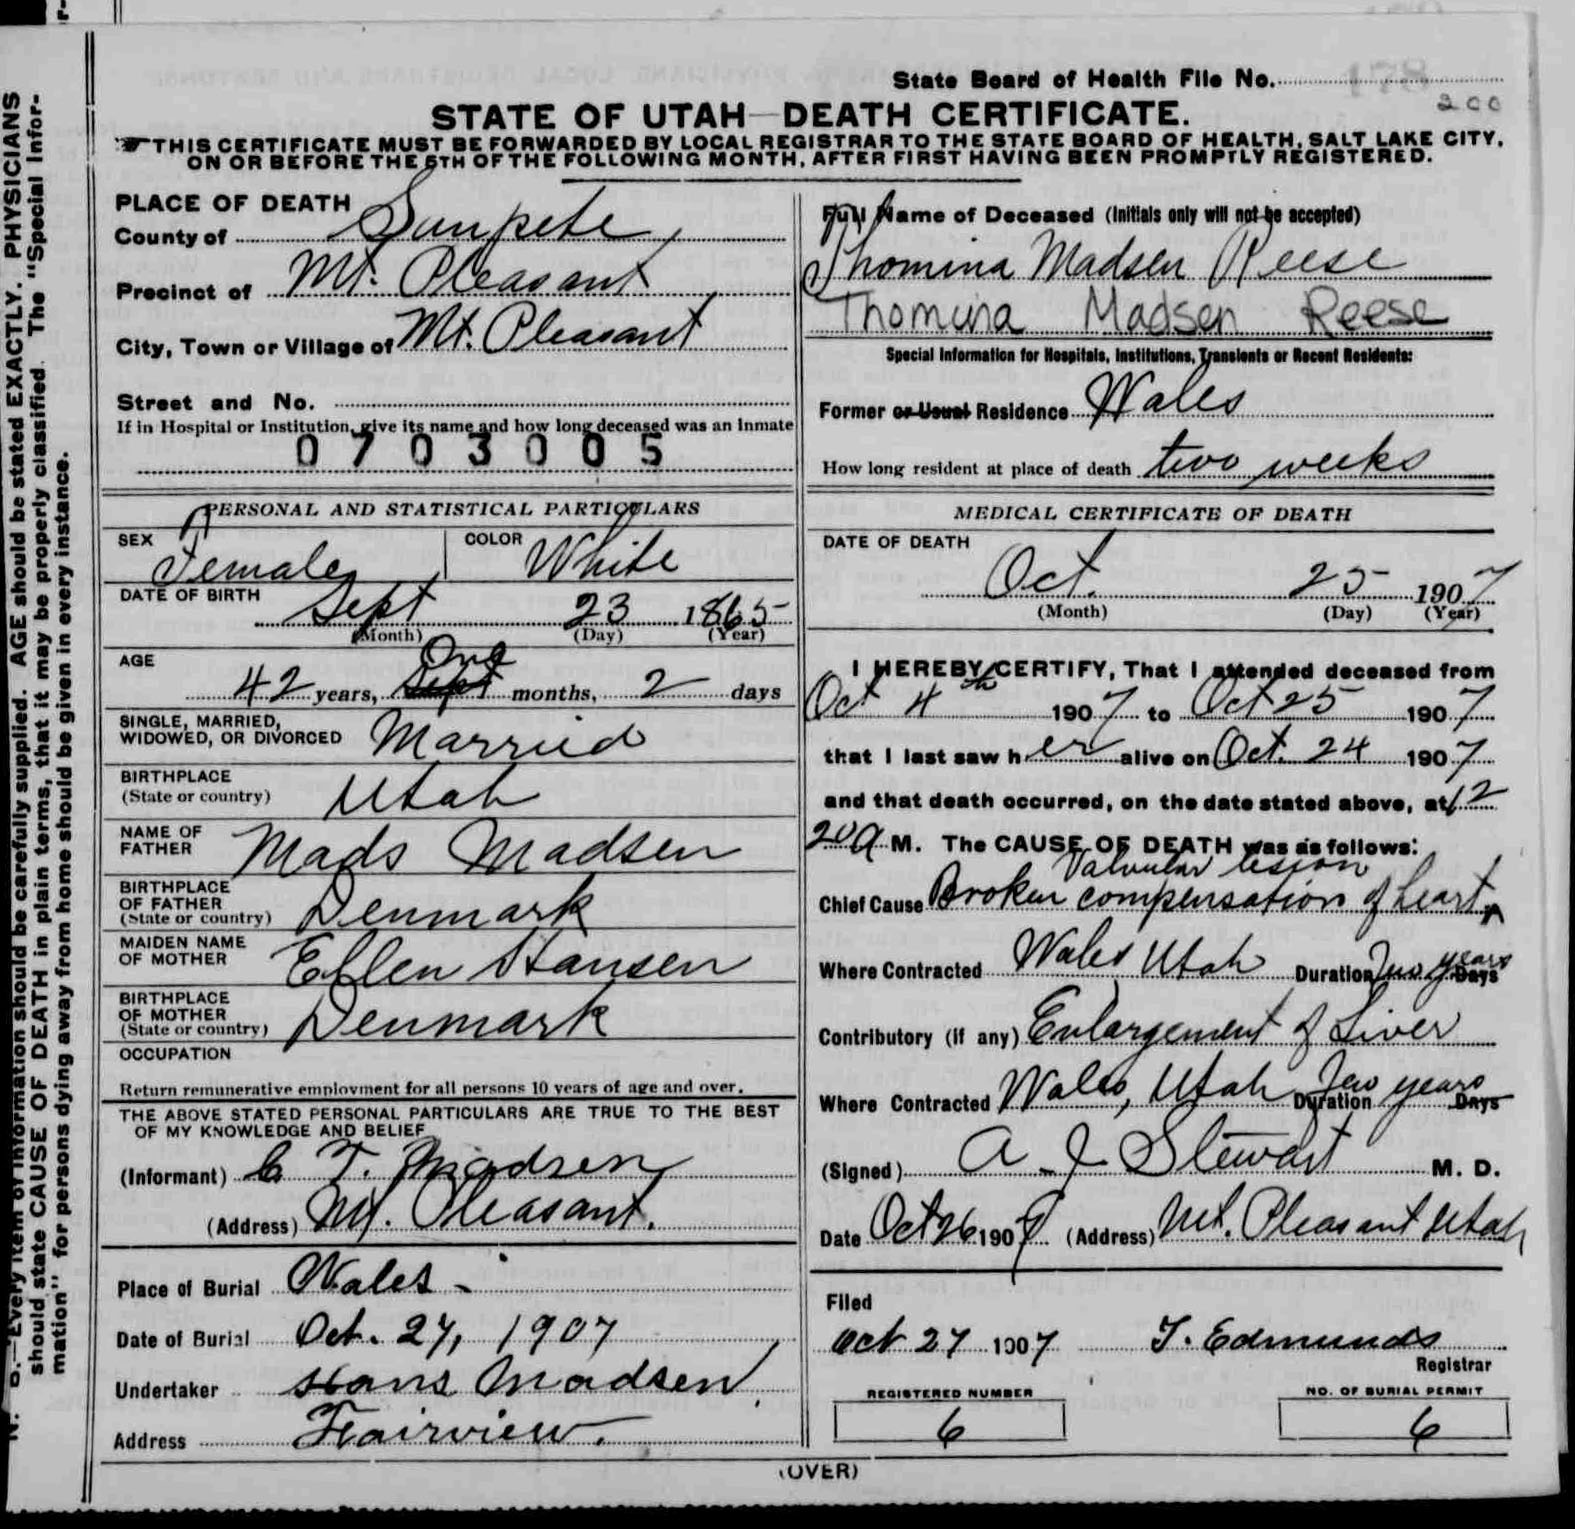 State Board of Health File No. 178
200
STATE OF UTAH—DEATH CERTIFICATE.
THIS CERTIFICATE MUST BE FORWARDED BY LOCAL REGISTRAR TO THE STATE BOARD OF HEALTH, SALT LAKE CITY,
ON OR BEFORE THE 5TH OF THE FOLLOWING MONTH, AFTER FIRST HAVING BEEN PROMPTLY REGISTERED.
PLACE OF DEATH
County of Sanpete
Precinct of Mt. Pleasant
City, Town or Village of Mt. Pleasant
Street and No.
If in Hospital or Institution, give its name and how long deceased was an Inmate
0703005
PERSONAL AND STATISTICAL PARTICULARS
SEX Female COLOR White
DATE OF BIRTH Sept 23 1865
(Month) (Day) (Year)
AGE 42 years, One months, 2 days
SINGLE, MARRIED,
WIDOWED, OR DIVORCED Married
BIRTHPLACE
(State or country) Utah
NAME OF
FATHER Mads Madsen
BIRTHPLACE
OF FATHER
(State or country) Denmark
MAIDEN NAME
OF MOTHER Ellen Hansen
BIRTHPLACE
OF MOTHER
(State or country) Denmark
OCCUPATION
Return remunerative employment for all persons 10 years of age and over.
THE ABOVE STATED PERSONAL PARTICULARS ARE TRUE TO THE BEST
OF MY KNOWLEDGE AND BELIEF
(Informant) C T. Madsen
(Address) Mt. Pleasant.
Place of Burial Wales -
Date of Burial Oct. 27, 1907
Undertaker Hans Madsen
Address Fairview.
Full Name of Deceased (Initials only will not be accepted)
Thomina Madsen Reese
Thomina Madsen Reese
Special Information for Hospitals, Institutions, Transients or Recent Residents:
Former or Usual Residence Wales
How long resident at place of death two weeks
MEDICAL CERTIFICATE OF DEATH
DATE OF DEATH
Oct. 25 1907
(Month) (Day) (Year)
I HEREBY CERTIFY, That I attended deceased from
Oct 4th 1907 to Oct 25 1907
that I last saw her alive on Oct. 24 1907
and that death occurred, on the date stated above, at 12
20 a M. The CAUSE OF DEATH was as follows:
Valvular lesion
Chief Cause Broken compensation of heart
Where Contracted Wales Utah Duration Two years Days
Contributory (if any) Enlargement of Liver
Where Contracted Wales, Utah Duration Few years Days
(Signed) A J Stewart M. D.
Date Oct 26 1907 (Address) Mt. Pleasant Utah
Filed
Oct 27 1907 T. Edmunds
Registrar
REGISTERED NUMBER
6
NO. OF BURIAL PERMIT
6
(OVER)
N. B.—Every item of information should be carefully supplied. AGE should be stated EXACTLY. PHYSICIANS
should state CAUSE OF DEATH in plain terms, that it may be properly classified. The "Special Infor-
mation" for persons dying away from home should be given in every instance.